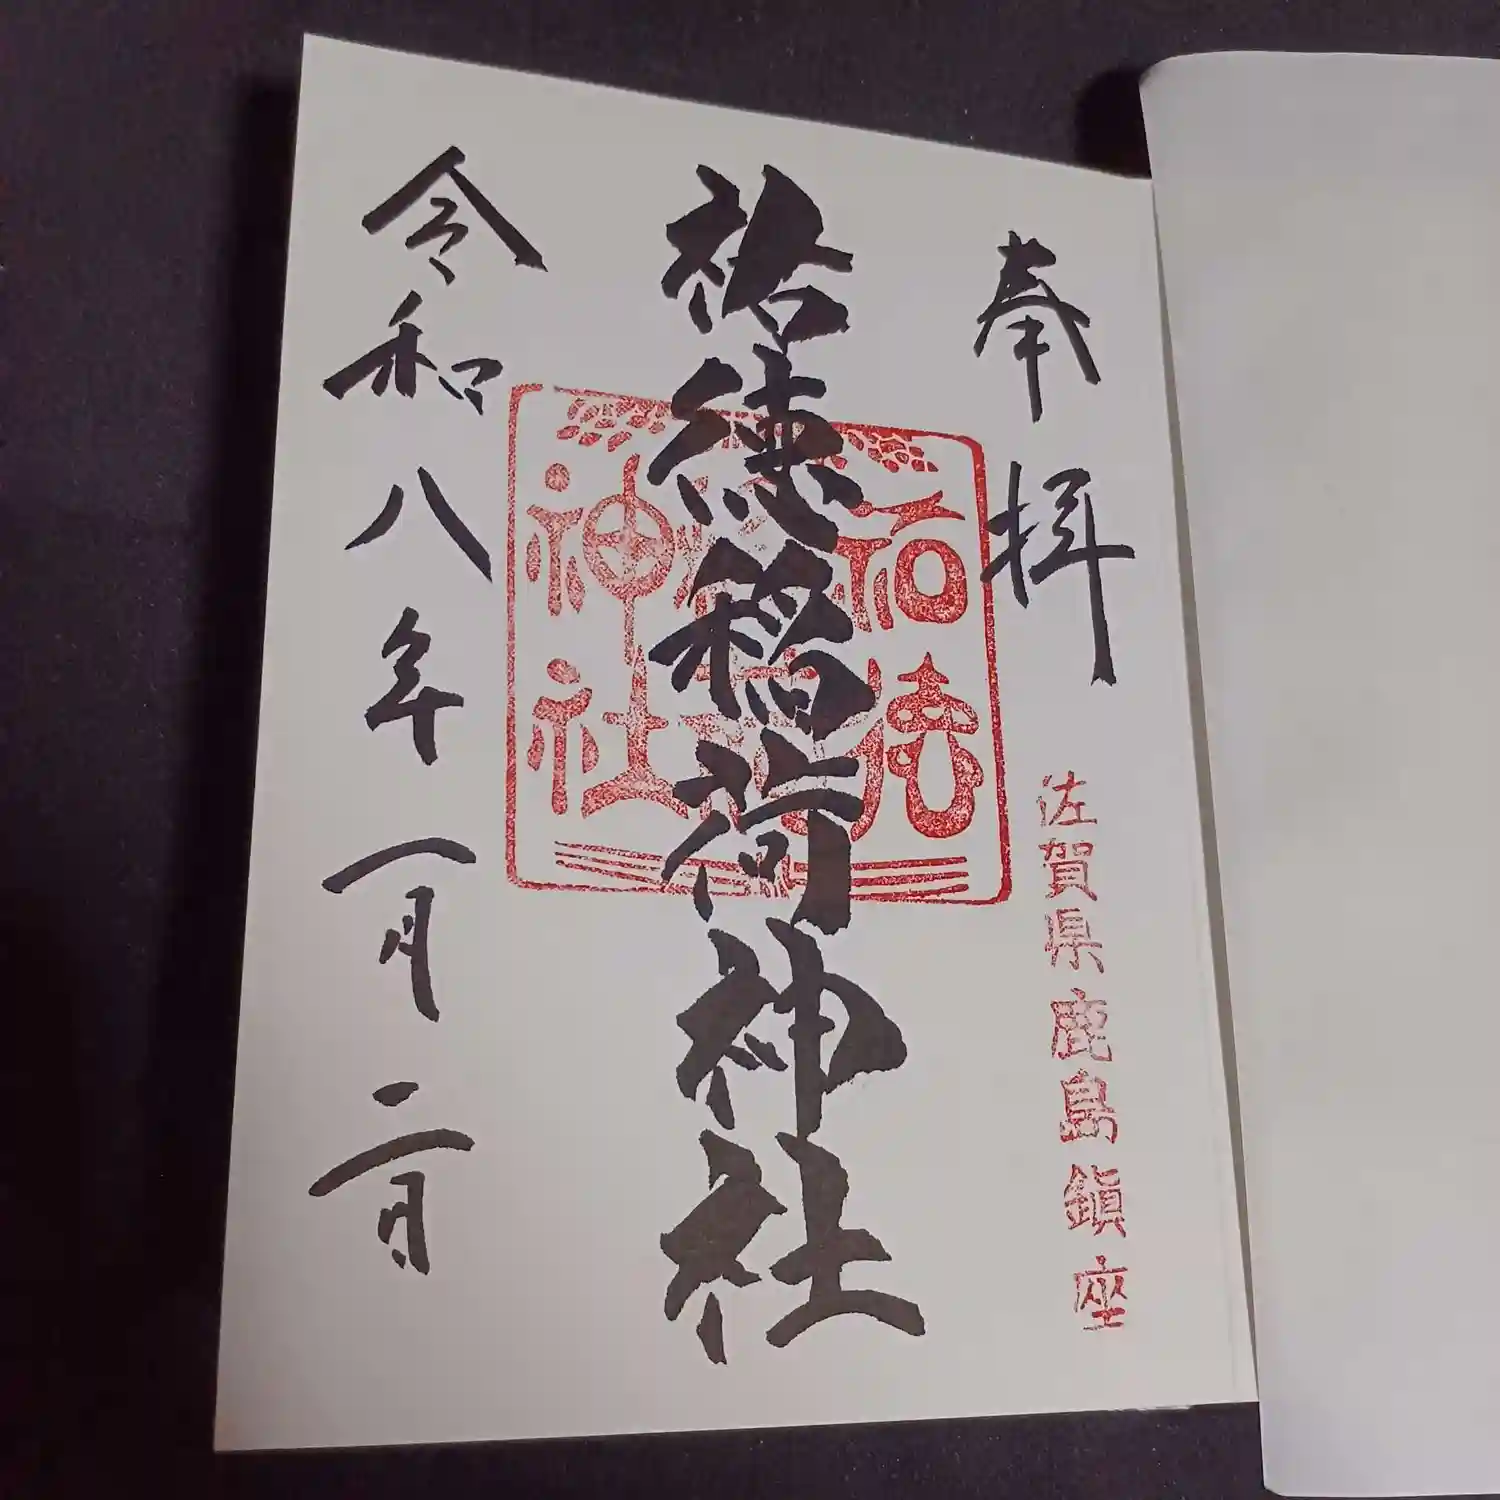 奉拝
佐賀県鹿島鎮座
祐徳稲荷神社
祐徳稲荷神社
令和八年一月二日